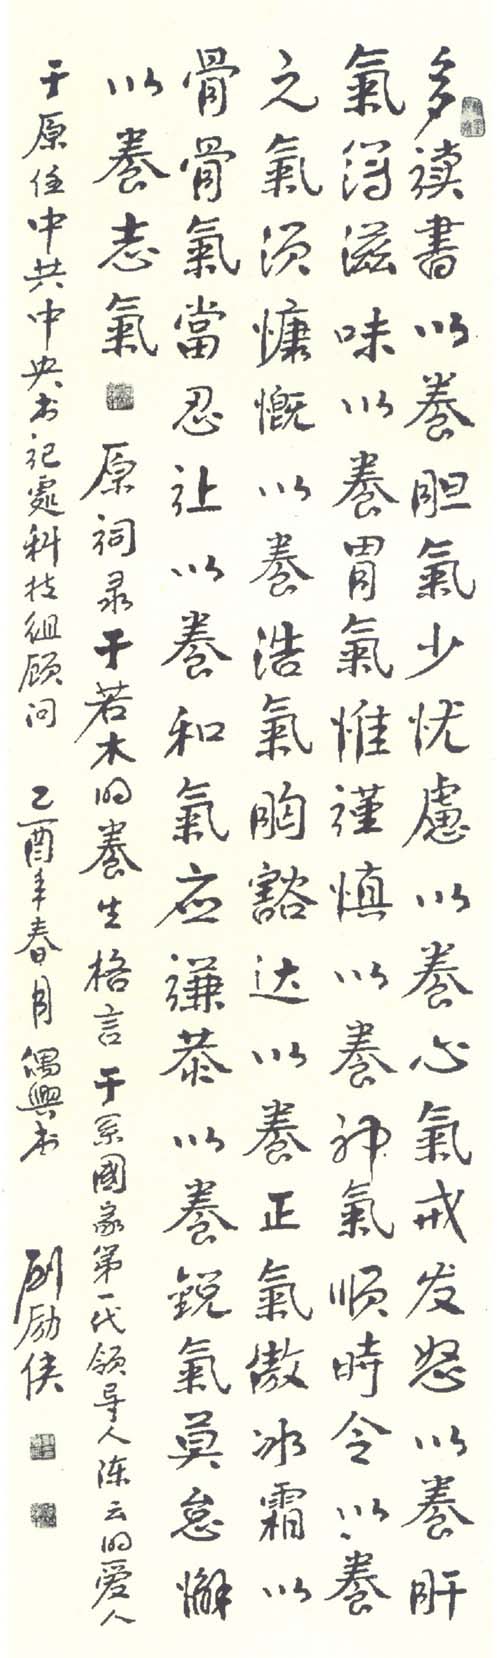 多读書以養胆氣少忧慮以養心氣戒发怒以養肝
氣薄滋味以養胃氣惟謹慎以養神氣順時令以養
元氣須慷慨以養浩氣胸豁达以養正氣傲冰霜以
骨骨氣當忍让以養和氣应謙恭以養鋭氣莫怠懈
以養志氣 原詞录于若木的養生格言于系國家第一代領导人陈云的爱人
于原任中共中央书记處科技组顾问 乙酉年春月偶興书 刘励侠